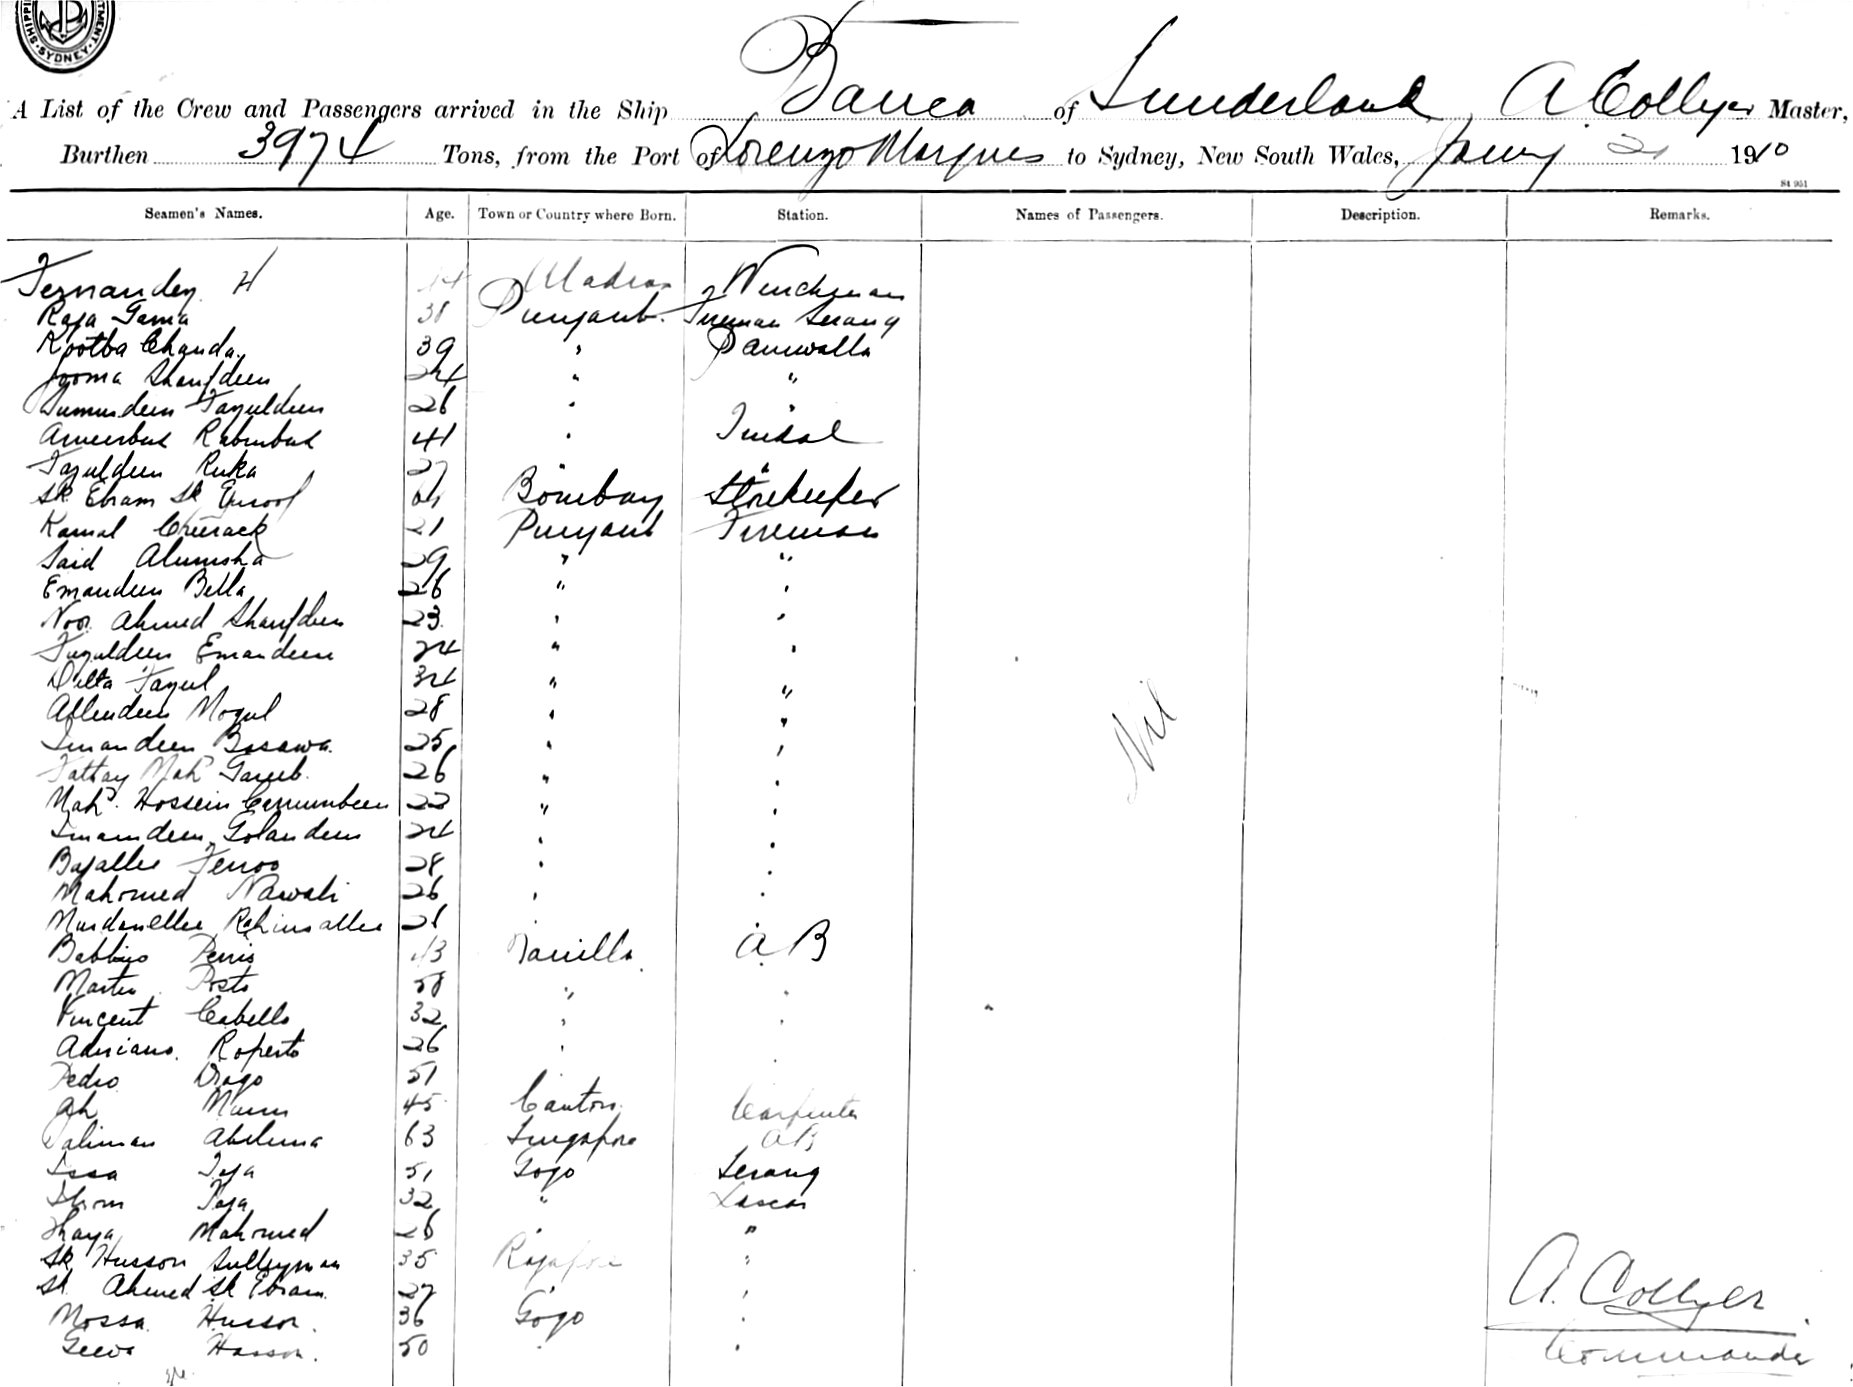 SYDNEY
A List of the Crew and Passengers arrived in the Ship Banca of Sunderland, A. Collyer Master,
Burthen 3974 Tons, from the Port of Lorenzo Marques to Sydney, New South Wales, Jany 21 1910
St 951
Seamen's Names. Age. Town or Country where Born. Station. Names of Passengers. Description. Remarks.
Fernandez H Madras Winchman
Raja Gama 38 Punjaub Fireman Serang
Kootba Chanda 39 " Paniwalla
Jooma Sharifdeen 24 " "
Fazuldeen 26 " "
41 " Tindal
Fazuldeen Ruka 27 " "
Sk Ebram Sk Bombay Storekeeper
Kamal 21 Punjaub Fireman
Said Alumsha 29 " "
Emandeen Bella 26 " "
Noor Ahmed Sharifdeen 23 " "
Fazuldeen Emandeen 24 " "
Ditta Fazul 34 " "
Mogul 28 " "
Imandeen Basawa 25 " "
Fattay Mahd 26 " "
Mahd Hossein 22 " "
Imamdeen Golandeen 24 " "
28 " "
Mahomed Nawab 26 " "
Rahimallee " "
43 Manilla A B
Martin 58 " "
Vincent Cabello 32 " "
Adriano Roperto 26 " "
Pedro Drago 51
Ah 45 Canton Carpenter
63 Singapore AB
Issa 51 Gogo Serang
32 " Lascar
Mahomed 26 " "
Sk Husson Sulleyman 35 "
Sk Ahmed Sk Ebram 27 "
Mossa Husson 36 Gogo "
Hasson 50 " "
Nil
A. Collyer
Commander